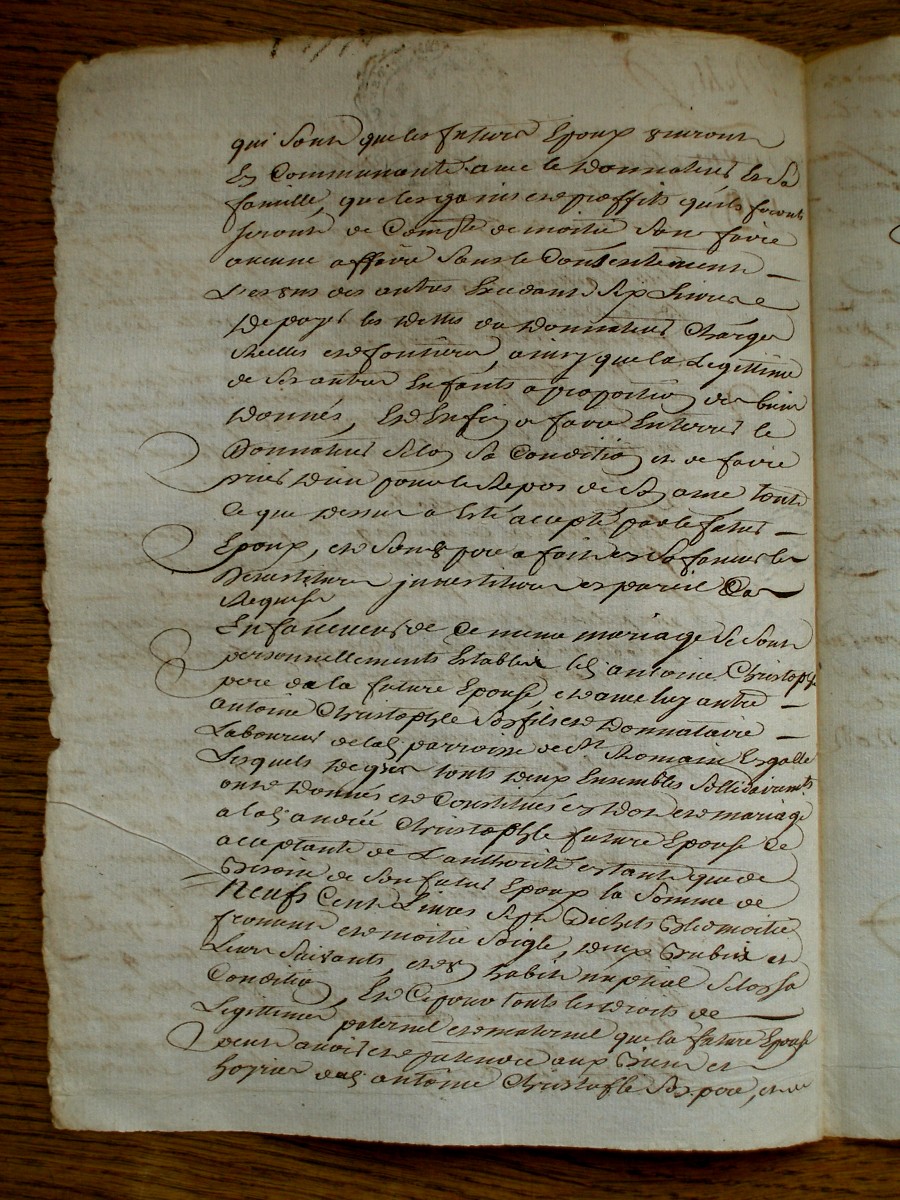 qui sont que les futurs Epoux vivront
En Communauté avec le Donnateur Et Sa
famille, que les gains et proffits quils feront
seront de Compte de moitié Sans faire
aucune affaire Sans le Consentement
L'es uns des autres
De payer les dettes du Donnateur Charges
Reelles et fontieres, ainsy que la Legittime
de Ses autres Enfants a proportion des biens
Donnés, Et Enfin a faire Enterrer le
Donnateur Selon Sa Condition et de faire
prier Dieu pour le Repos de Son ame tout
Ce que dessus a Esté accepté par le futur
Epoux, et Son pere a fait en Sa faveur les
Devestitures jnvestitures en pareil Cas
Requises
En faveur de Ce meme mariage Se Sont
personnellements Establis led antoine Christophle
pere de la future Epouse, et avec luy autre
antoine Christophle Son fils et Donnataire
Laboureur de lad parroisse de St Romain
Lesquels De gré touts deux Ensembles Sollidairements
ont Donnés et Constitués en Dot et mariage
a lad andrée Christophle future Epouse Ce
acceptante de L'authorité En tant que de
Besoin de Son futur Epoux la Somme de
Neufs Cent Livres Sept Bichets Bled moitié
froment et moitié Soigle, deux Brebis et
Leurs Suivants, et un habit nuptial Selon Sa
Condition, Et Ce pour touts les droits de
Legittimes paternel et maternel que la future Epouse
peut avoir et pretendre aux Biens et
hoyries dud antoine Christofle Son pere, et de